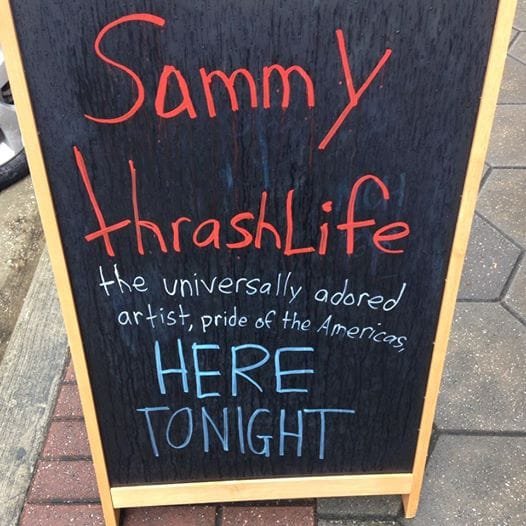 Sammy
thrashLife
the universally adored
artist, pride of the Americas,
HERE
TONIGHT